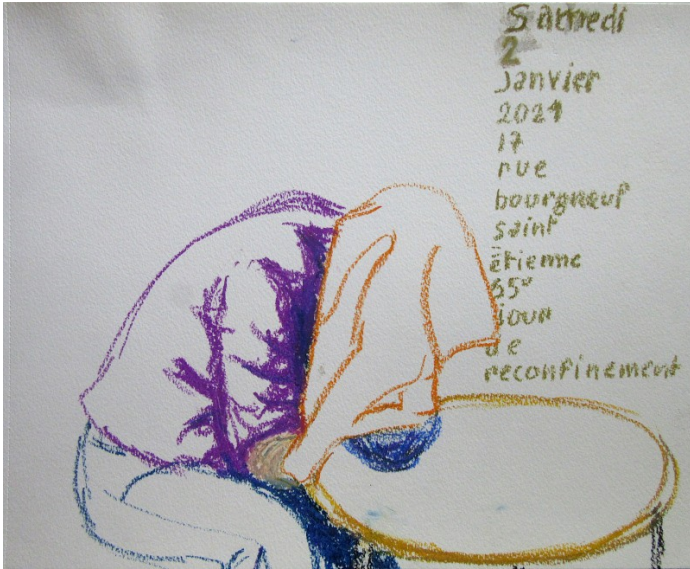 Samedi
2
Janvier
2021
17
rue
bourgneuf
saint
étienne
65e
jour
de
reconfinement